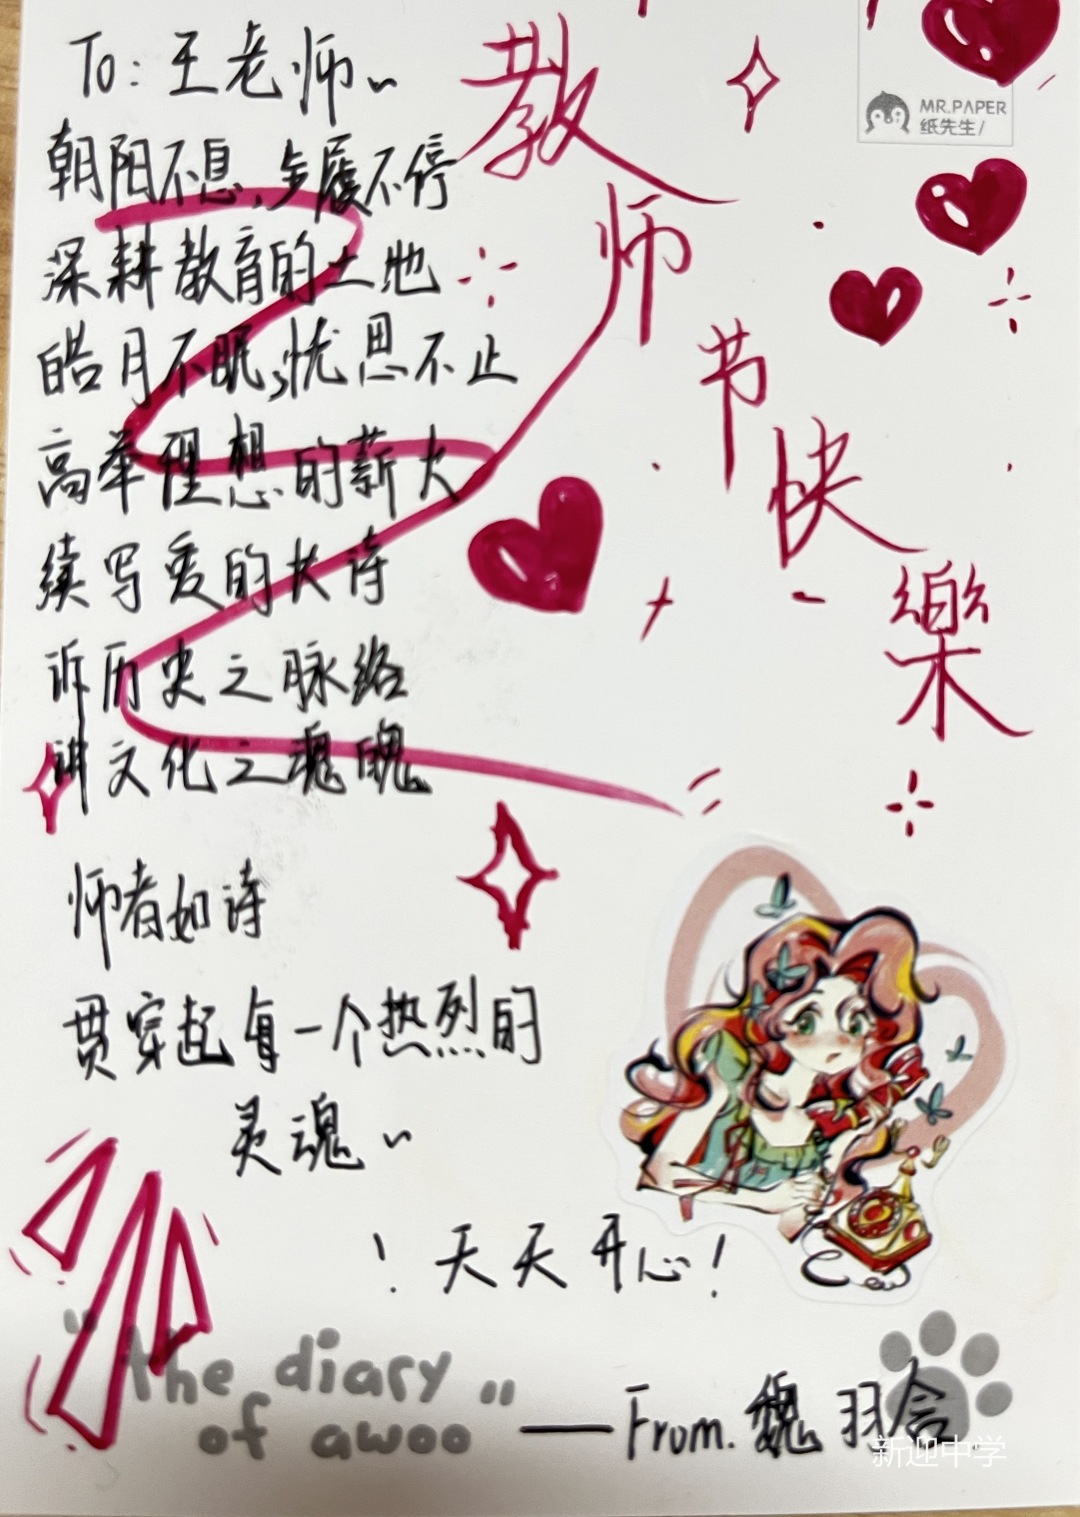 To: 王老师~
教师节快樂
MR.PAPER
纸先生/
朝阳不息,步履不停
深耕教育的土地
皓月不眠,忧思不止
高举理想的薪火
续写爱的长诗
诉历史之脉络
讲文化之魂魄
师者如诗
贯穿起每一个热烈的
灵魂~
! 天天开心!
"the diary
of awoo"
——From. 魏羽舍
新迎中学